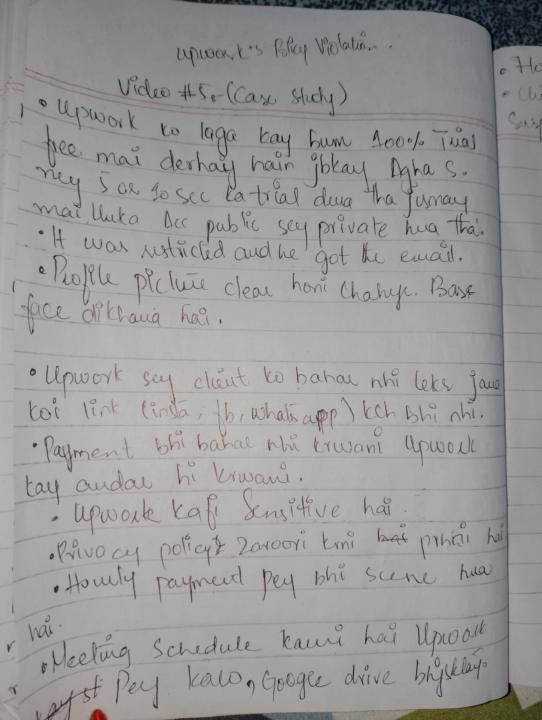 Upwork's Policy Violation..
Video #5. (Case Study)
• Upwork ko laga kay hum 100% Trial
free mai derhaiy hain jbkay Agha S.
ney 5 or 10 sec ka trial diya tha jismay
mai Unka Acc public sey private hua tha.
• It was restricted and he got the email.
• Profile picture clear honi chahye. Base
face dikhana hai.
• Upwork sey client ko bahar nhi leks jana
koi link (insta, fb, whatsapp) kch bhi nhi.
• Payment bhi bahar nhi krwani Upwork
kay andar hi krwani.
• Upwork kafi Sensitive hai.
• Privacy policy zaroori krni prhni hai
• Hourly payment pey bhi scene hua
hai.
• Meeting Schedule karni hai Upwork
pey karo, Google drive
• Ho